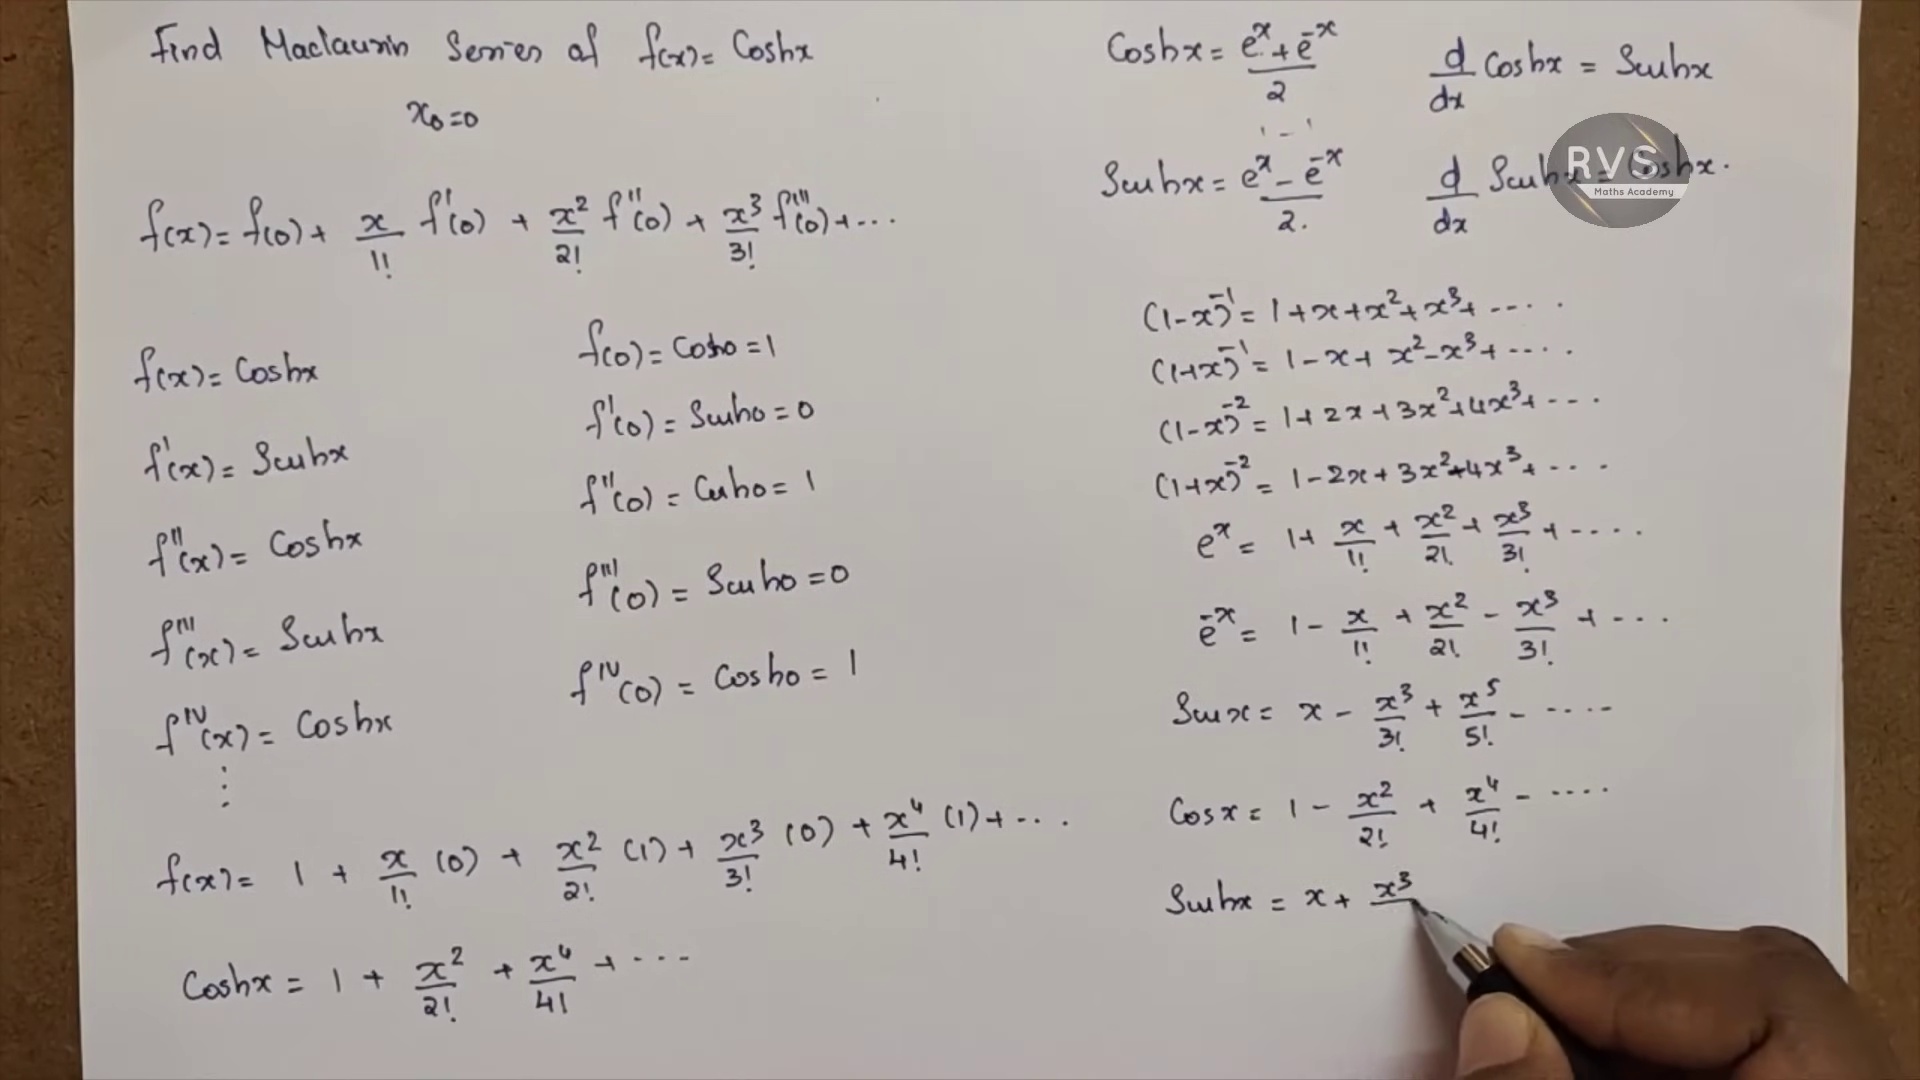 Find Maclaurin Series of f(x) = Coshx
x₀=0
f(x) = f(0) + x/1! f'(0) + x²/2! f''(0) + x³/3! f'''(0) + ...
f(x) = Coshx
f(0) = Cosh0 = 1
f'(x) = Sinhx
f'(0) = Sinh0 = 0
f''(x) = Coshx
f''(0) = Cosh0 = 1
f'''(x) = Sinhx
f'''(0) = Sinh0 = 0
f^IV(x) = Coshx
f^IV(0) = Cosh0 = 1
⋮
f(x) = 1 + x/1! (0) + x²/2! (1) + x³/3! (0) + x⁴/4! (1) + ...
Coshx = 1 + x²/2! + x⁴/4! + ...
Coshx = (eˣ + e⁻ˣ)/2
d/dx Coshx = Sinhx
Sinhx = (eˣ - e⁻ˣ)/2.
d/dx Sinhx = Coshx.
RVS
Maths Academy
(1-x)⁻¹ = 1+x+x²+x³+ ....
(1+x)⁻¹ = 1-x+x²-x³+ ....
(1-x)⁻² = 1+2x+3x²+4x³+ ...
(1+x)⁻² = 1-2x+3x²-4x³+ ....
eˣ = 1 + x/1! + x²/2! + x³/3! + ....
e⁻ˣ = 1 - x/1! + x²/2! - x³/3! + ....
Sinx = x - x³/3! + x⁵/5! - ....
Cosx = 1 - x²/2! + x⁴/4! - ....
Sinhx = x + x³